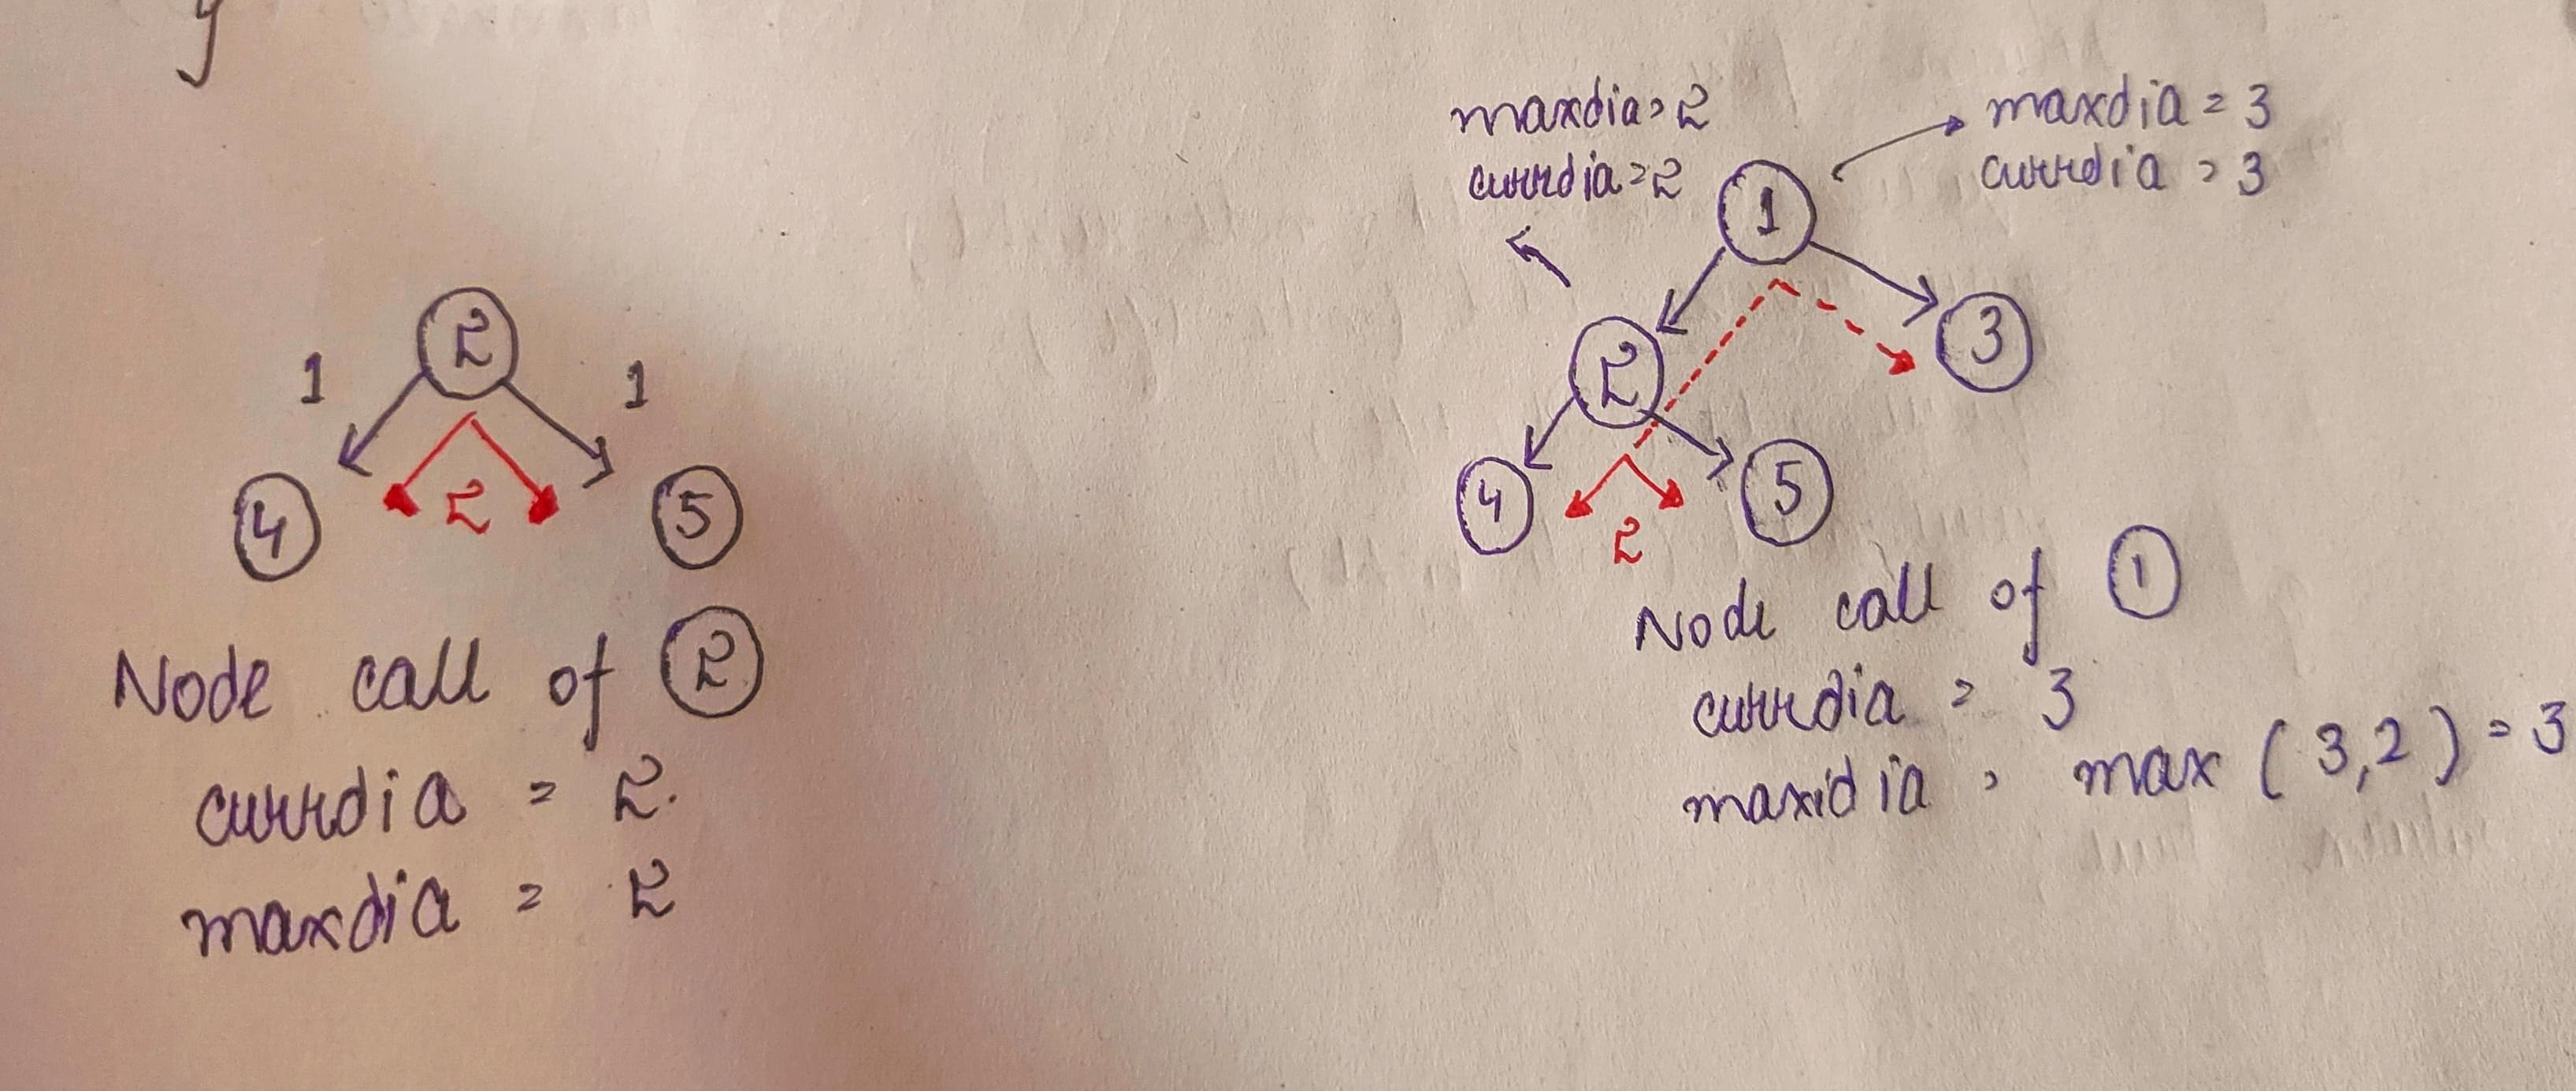 y
2
1 1
4 2 5
Node call of 2
currdia = 2.
maxdia = 2
maxdia = 2
currdia = 2
maxdia = 3
currdia = 3
1
2 3
4 5
2
Node call of 1
currdia = 3
maxidia = max (3,2) = 3